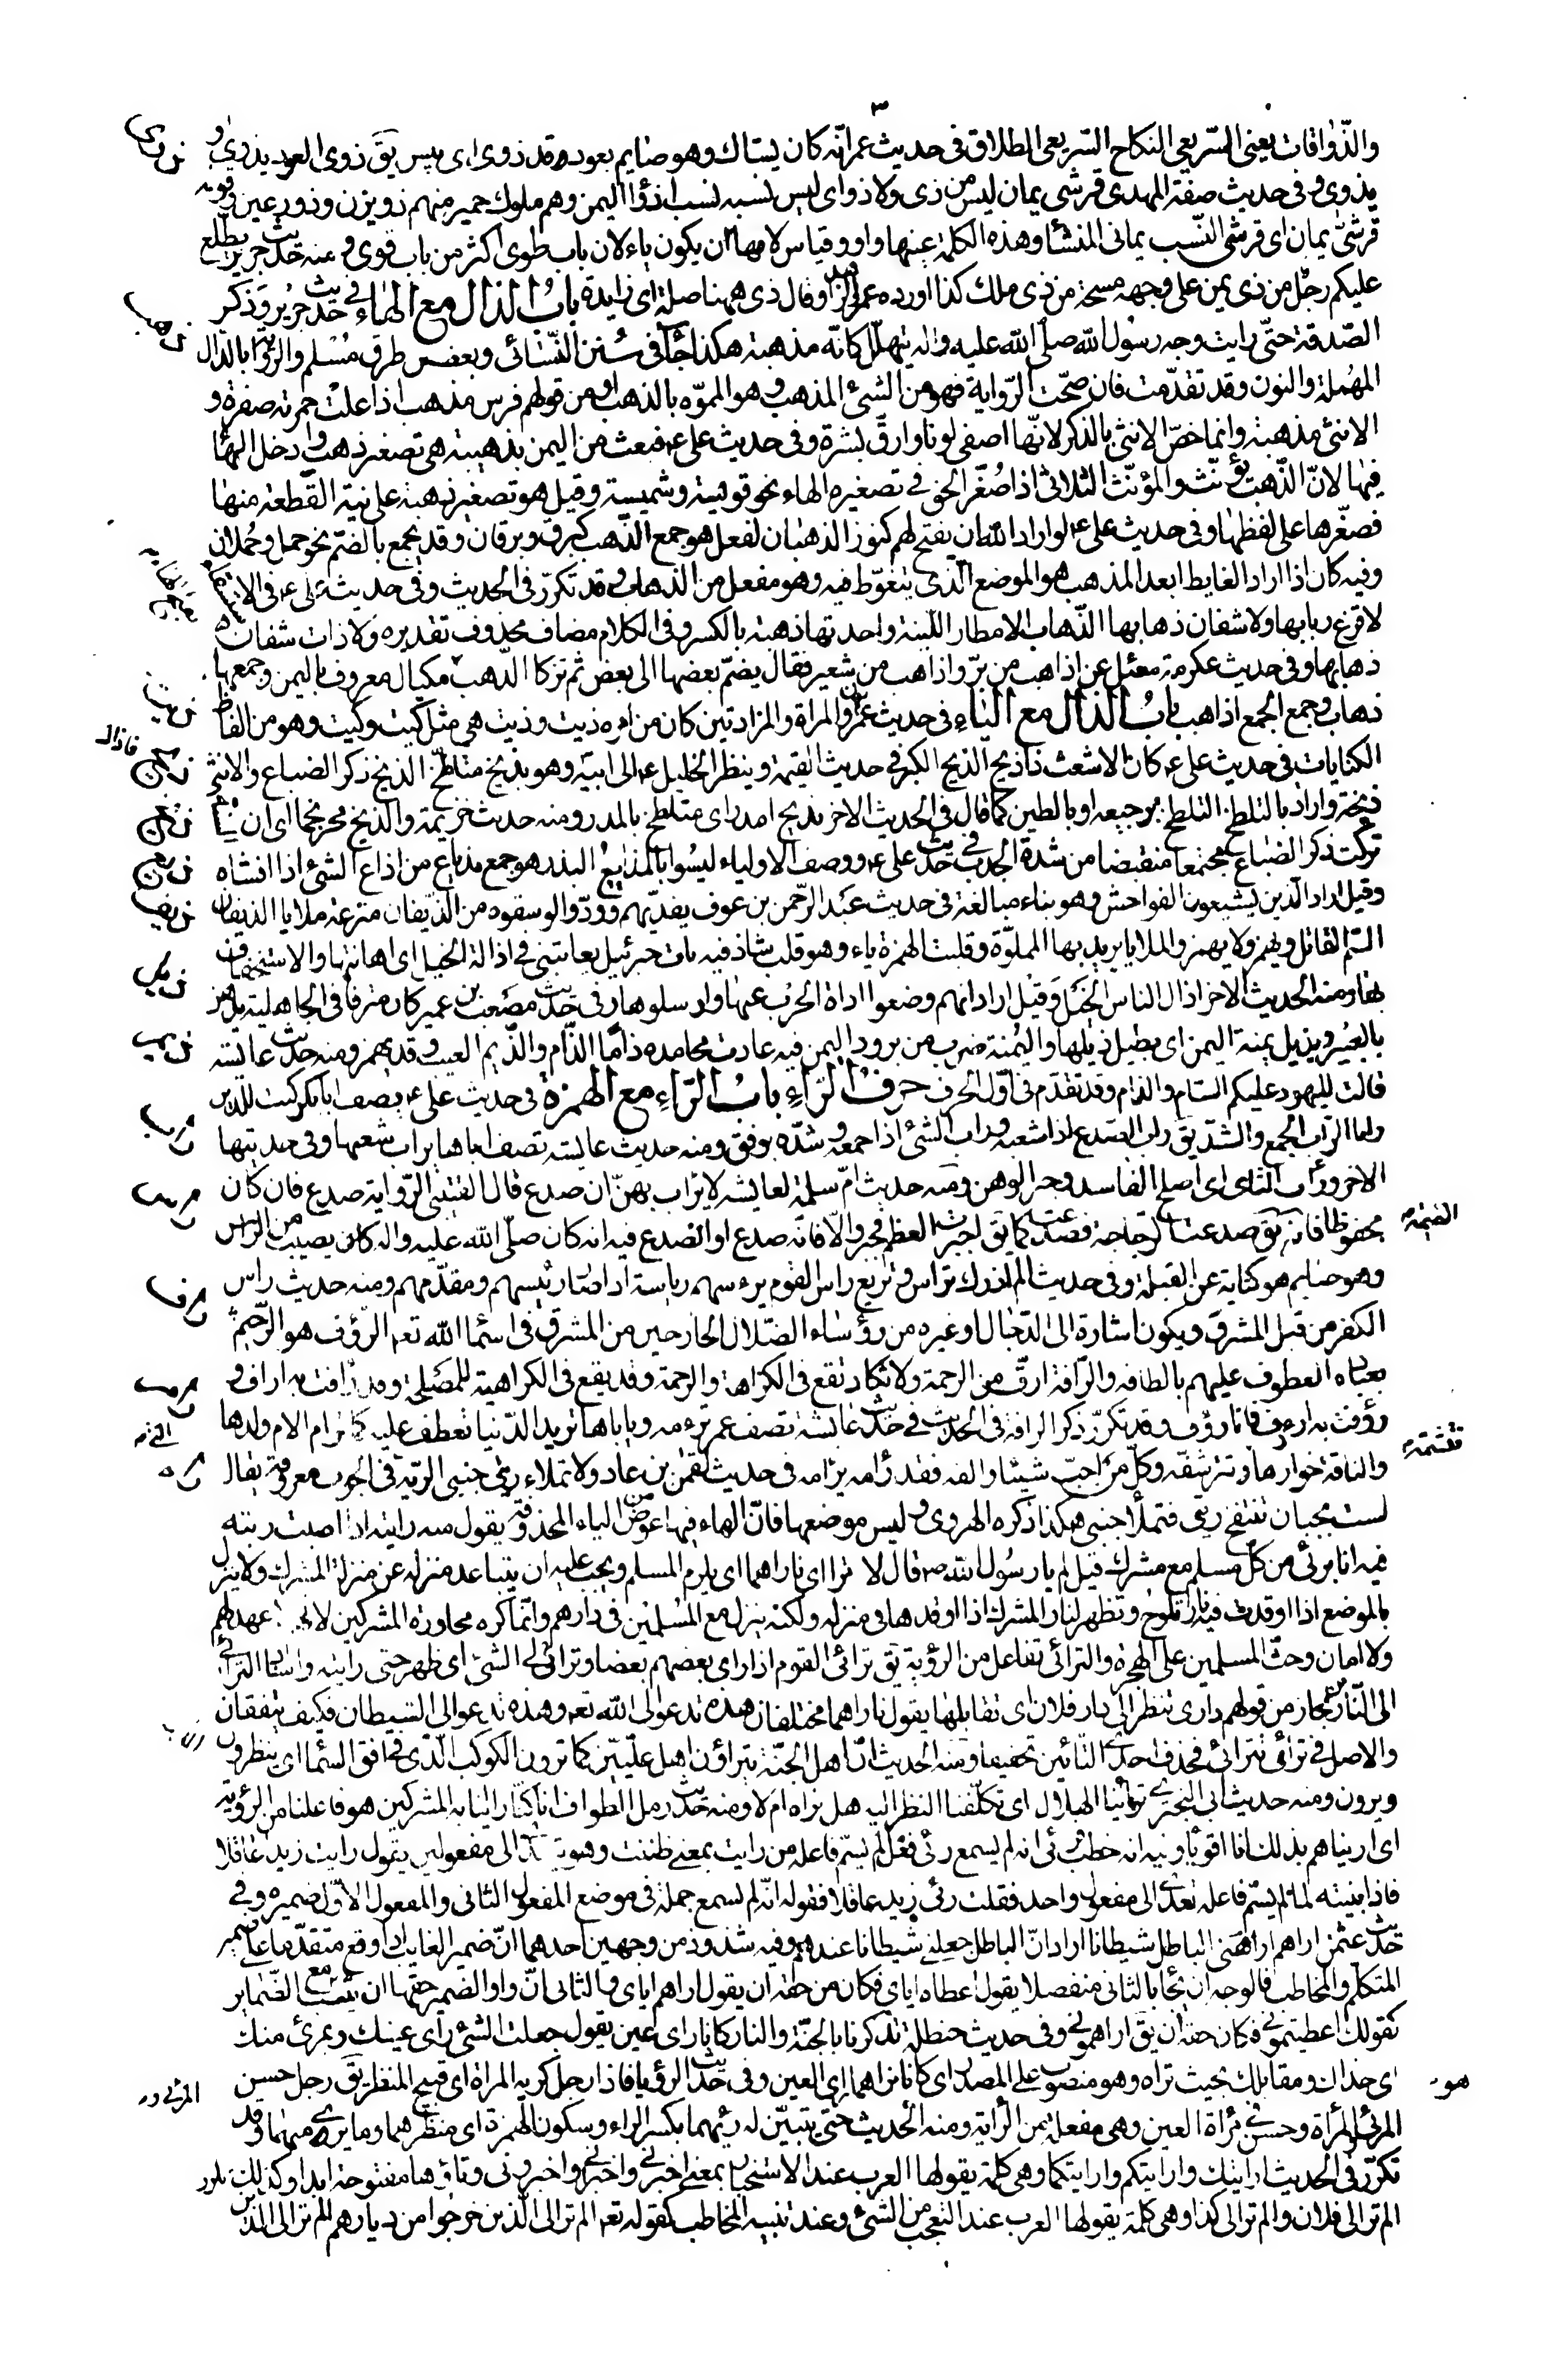 والذّواقات يعني السّريعي النكاح السّريعي الطلاق في حديث عمر انّه كان يستاك وهو صايم بعود قد ذوى اى يبس يق ذوى العود يذوى و
يذوى وفي حديث صفة المهدى قرشى يمان ليس من ذى ولا ذو اى ليس نسبه نسب اذواء اليمن وهم ملوك حمير منهم ذو يزن وذو رعين وقوله
قرشىّ يمان اى قرشى النّسب يمانى المنشأ وهذه الكلمة عينها واو وقياس لامها ان يكون ياء لان باب طوى اكثر من باب قوى ومنه حديث جرير يطلع
عليكم رجل من ذى يمن على وجهه مسحة من ذى ملك كذا اورده عمر الزاهد وقال ذى ههنا صلة اى زايدة باب الذال مع الهاء في حديث جرير وذكر
الصّدقة حتّى رايت وجه رسول الله صلى الله عليه واله يتهلّل كانّه مذهبة هكذا جاء في سنن النّسائى وبعض طرق مسلم والرواية بالدال
المهملة والنون وقد تقدّمت فان صحّت الرّواية فهو من الشئ المذهب وهو المموّه بالذهب او من قولهم فرس مذهب اذا علت حمرته صفرة و
الانثى مذهبة وانما خصّ الانثى بالذكر لانّها اصفى لونا وارقّ بشرة وفي حديث على ع فبعث من اليمن بذهيبة هي تصغير ذهب وادخل الهاء
فيها لانّ الذّهب يؤنّث والمؤنّث الثلاثى اذا صُغّر الحق في تصغيره الهاء نحو قويسة وشميسة وقيل هو تصغير ذهبة على نيّة القطعة منها
فصغّرها على لفظها وفي حديث على ع لو اراد الله ان يفتح لهم كنوز الذهبان لفعل هو جمع الذّهب كبرق وبرقان وقد يجمع بالضمّ نحو حمل وحُملان
وفيه كان اذا اراد الغايط ابعد المذهب هو الموضع الّذى يتغوّط فيه وهو مفعل من الذهاب وقد تكرّر في الحديث وفي حديث على ع في الاستسقاء
لا قزع ربابها ولا شفان ذهابها الذّهاب الامطار اللّيّنة واحدتها ذهبة بالكسر وفي الكلام مضاف محذوف تقديره ولا ذات شفان
ذهابها وفي حديث عكرمة سئل عن اذاهب من برّ واذاهب من شعير فقال يضمّ بعضها الى بعض ثم تزكا الذّهب مكيال معروف باليمن وجمعها
ذهاب وجمع الجمع اذاهب باب الذال مع الياء في حديث عمران والمراة والمزادتين كان من امره ذيت وذيت هي مثل كيت وكيت وهو من الفاظ
الكنايات في حديث على ع كان الاشعث ذا ذيخ الذيخ الكبر في حديث القيمة وينظر الخليل ع الى ابيه وهو بذيخ متلطخ الذيخ ذكر الضباع والانثى
ذيخة واراد بالتلطخ التلطخ برجيعه او بالطين كما قال في الحديث الاخر بذيخ امدر اى متلطخ بالمدر ومنه حديث خزيمة والذيخ محرنجما اى ان
تركت ذكر الضباع مجتمعا منقبضا من شدة الجدب في حديث على ع ووصف الاولياء ليسوا بالمذاييع البذر هو جمع مذياع من اذاع الشئ اذا افشاه
وقيل اراد الّذين يشيعون الفواحش وهو بناء مبالغة في حديث عبد الرّحمن بن عوف يفدّيهم وودّوا لو سقوه من الذّيفان مترعة ملايا الذيفان
السّم القاتل ويهمز ولا يهمز والملايا يريد بها المملوّة وقلبت الهمزة ياء وهو قلب شاذ فيه بات جبرئيل يعاتبنى في اذالة الخيل اى اهانتها والاستخفاف
بها ومنه الحديث الاخر اذال الناس الخيل وقيل اراد انهم وضعوا اداة الحرب عنها وارسلوها وفي حديث مصعب بن عمير كان مترفا في الجاهلية يدّهن
بالعبير ويذيل يمنة اليمن اى يطيل ذيلها واليُمنة ضرب من برود اليمن فيه عادت محامده ذامّا الذّام والذّيم العيب وقد يهمز ومنه حديث عايشة
قالت لليهود عليكم السّام والذام وقد تقدّم في اوّل الحرف حرف الرّاء باب الرّاء مع الهمزة في حديث على ع يصف ابا بكر كنت للدّين
رابا الرّاب الجمع والشدّ يق راب الصدع اذا شعبه وراب الشئ اذا جمعه وشدّه برفق ومنه حديث عايشة تصف اباها يراب شعبها وفي حديثها
الاخر وراب الثاى اى اصلح الفاسد وجبر الوهن ومنه حديث امّ سلمة لعايشة لا يراب بهنّ ان صدع قال القتيبى الرّواية صدع فان كان
محفوظا فانه يق صدعت الزجاجة فصدعت كما يق جبرت العظم فجبر والّا فانّه صدع او انصدع فيه انه كان صلّى الله عليه واله كان يصيب من الراس
وهو صايم هو كناية عن القبلة وفي حديث الم اذرك تراس وتربع راس القوم يرءسهم رياسة اذا صار رئيسهم ومقدّمهم ومنه حديث راس
الكفر من قبل المشرق ويكون اشارة الى الدّجّال او غيره من رؤساء الضّلال الخارجين من المشرق في اسماء الله تعه الرؤف هو الرّحيم
بعباده العطوف عليهم بالطافه والرّافة ارقّ من الرحمة ولا تكاد تقع في الكراهة والرحمة وقد يقع في الكراهية للمصلحة وقد رافت به اراف و
رؤفت به ارءوف فانا رؤف وقد تكرّر ذكر الرافة في الحديث في حديث عايشة تصف عمر ترءمه وياباها تريد الدّنيا تعطف عليه كما ترام الام ولدها
والناقة حوارها وتترشّفه وكل من احبّ شيئا والفه فقد رامه يرامه في حديث لقمان بن عاد ولا تملاء رئتى جنبى الرّية في الجوف معروفة يقال
لست بجبان تنتفخ رئتى فتملأ جنبى هكذا ذكره الهروى وليس موضعها فانّ الهاء فيها عوض من الياء المحذوفة يقول منه رايته اذا اصبت رئته
فيه انا برئ من كل مسلم مع مشرك قيل لم يا رسول الله ص قال لا تراءى ناراهما اى يلزم المسلم ويجب عليه ان يتباعد منزله عن منزلة المشرك ولا ينزل
بالموضع اذا اوقدت فيه ناره تلوح وتظهر لنار المشرك اذا اوقدها في منزله ولكنه ينزل مع المسلمين في دارهم وانّما كره مجاورة المشركين لانهم لا عهد لهم
ولا امان وحثّ المسلمين على الهجرة والترائى تفاعل من الرؤية يق ترائى القوم اذا راى بعضهم بعضا وترائى لى الشئ اى ظهر حتى رايته واسناد الترائى
الى النّار مجاز من قولهم دارى تنظر الى دار فلان اى تقابلها يقول ناراهما مختلفان هذه تدعو الى الله تعه وهذه تدعو الى الشيطان فكيف يتفقان
والاصل في ترائى تترائى فحذف احدى التائين تخفيفا ومنه الحديث انّ اهل الجنّة يتراؤن اهل علّيّين كما ترون الكوكب الذى في افق السّماء اى ينظرون
ويرون ومنه حديث ابى البخترى تراينا الهلال اى تكلّفنا النظر اليه هل نراه ام لا ومنه حديث رمل الطواف انا كنّا راينا به المشركين هو فاعلنا من الرؤية
اى ارينا هم بذلك انا اقوياء وفيه انه خطب فرئى انه لم يسمع رئى فعل لم يسمّ فاعله من رايت بمعنى ظننت وهو يتعدّى الى مفعولين يقول رايت زيدا عاقلا
فاذا بنيته لما لم يسمّ فاعله تعدّى الى مفعول واحد فقلت رئى زيد عاقلا فقوله انّه لم يسمع جملة في موضع المفعول الثانى والمفعول الاول ضميره وفي
حديث عثمن اراهم اراهمنى الباطل شيطانا اراد انّ الباطل جعلنى شيطانا عندهم وفيه شذوذ من وجهين احدهما انّ ضمير الغايب اذا وقع متقدّما على ضمير
المتكلّم والمخاطب فالوجه ان يجاء بالثانى منفصلا يقول اعطاه اياى فكان من حقه ان يقول اراهم اياى والثانى انّ واو الضمير حقها ان يثبت مع الضماير
كقولك اعطيتمونى فكان حقه ان يق اراهمونى وفي حديث حنظلة تذكرنا بالجنّة والنار كانا راى عين يقول جعلت الشئ راى عينك وبمرئ منك
اى حذاك ومقابلك بحيث تراه وهو منصوب على المصدر اى كانا نراهما راى العين وفي حديث الرؤيا فاذا رجل كريه المراة اى قبيح المنظر يق رجل حسن
المرئى والمرأة وحسن في مرأة العين وهي مفعلة من الرأية ومنه الحديث حتى يتبيّن له رئيهما بكسر الراء وسكون الهمزة اى منظرهما وما يرى منهما وقد
تكرّر في الحديث ارايتك وارايتكم وارايتكما وهي كلمة يقولها العرب عند الاستخبار بمعنى اخبرنى واخبرانى واخبرونى وتاؤها مفتوحة ابدا وكذلك
الم تر الى فلان والم تر الى كذا وهي كلمة يقولها العرب عند التعجّب من الشئ وعند تنبيه المخاطب كقوله تعه الم تر الى الّذين خرجوا من ديارهم الم تر الى الّذين